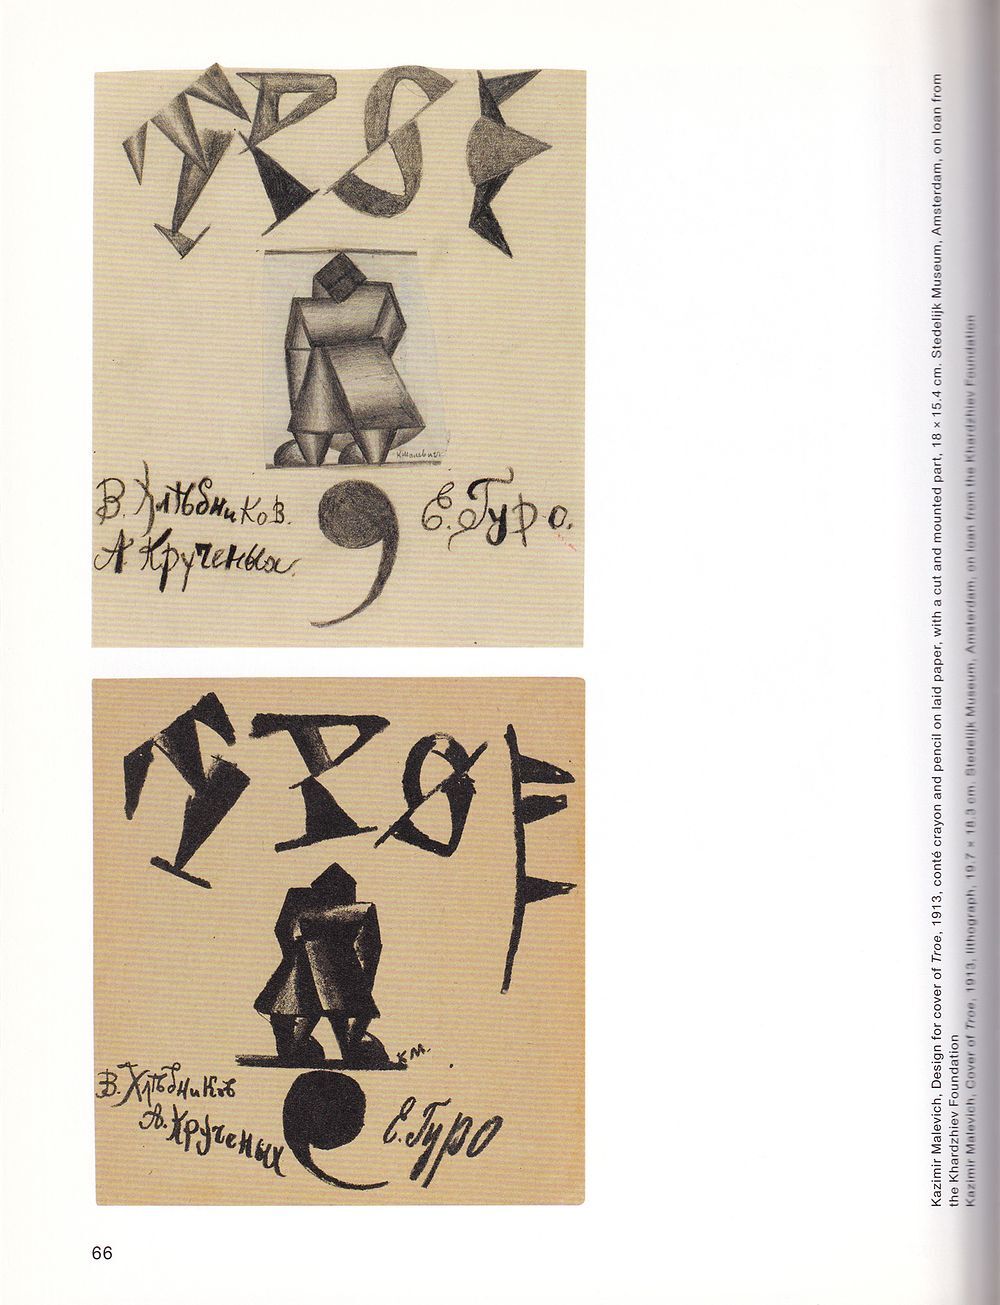 ТРОЕ
К Малевич
В. Хлѣбников.
А. Крученых.
Е. Гуро.
ТРОЕ
КМ.
В. Хлѣбников
А. Крученых
Е. Гуро
66
Kazimir Malevich, Design for cover of Troe, 1913, conté crayon and pencil on laid paper, with a cut and mounted part, 18 × 15.4 cm. Stedelijk Museum, Amsterdam, on loan from
the Khardzhiev Foundation
Kazimir Malevich, Cover of Troe, 1913, lithograph, 19.7 × 18.3 cm. Stedelijk Museum, Amsterdam, on loan from the Khardzhiev Foundation